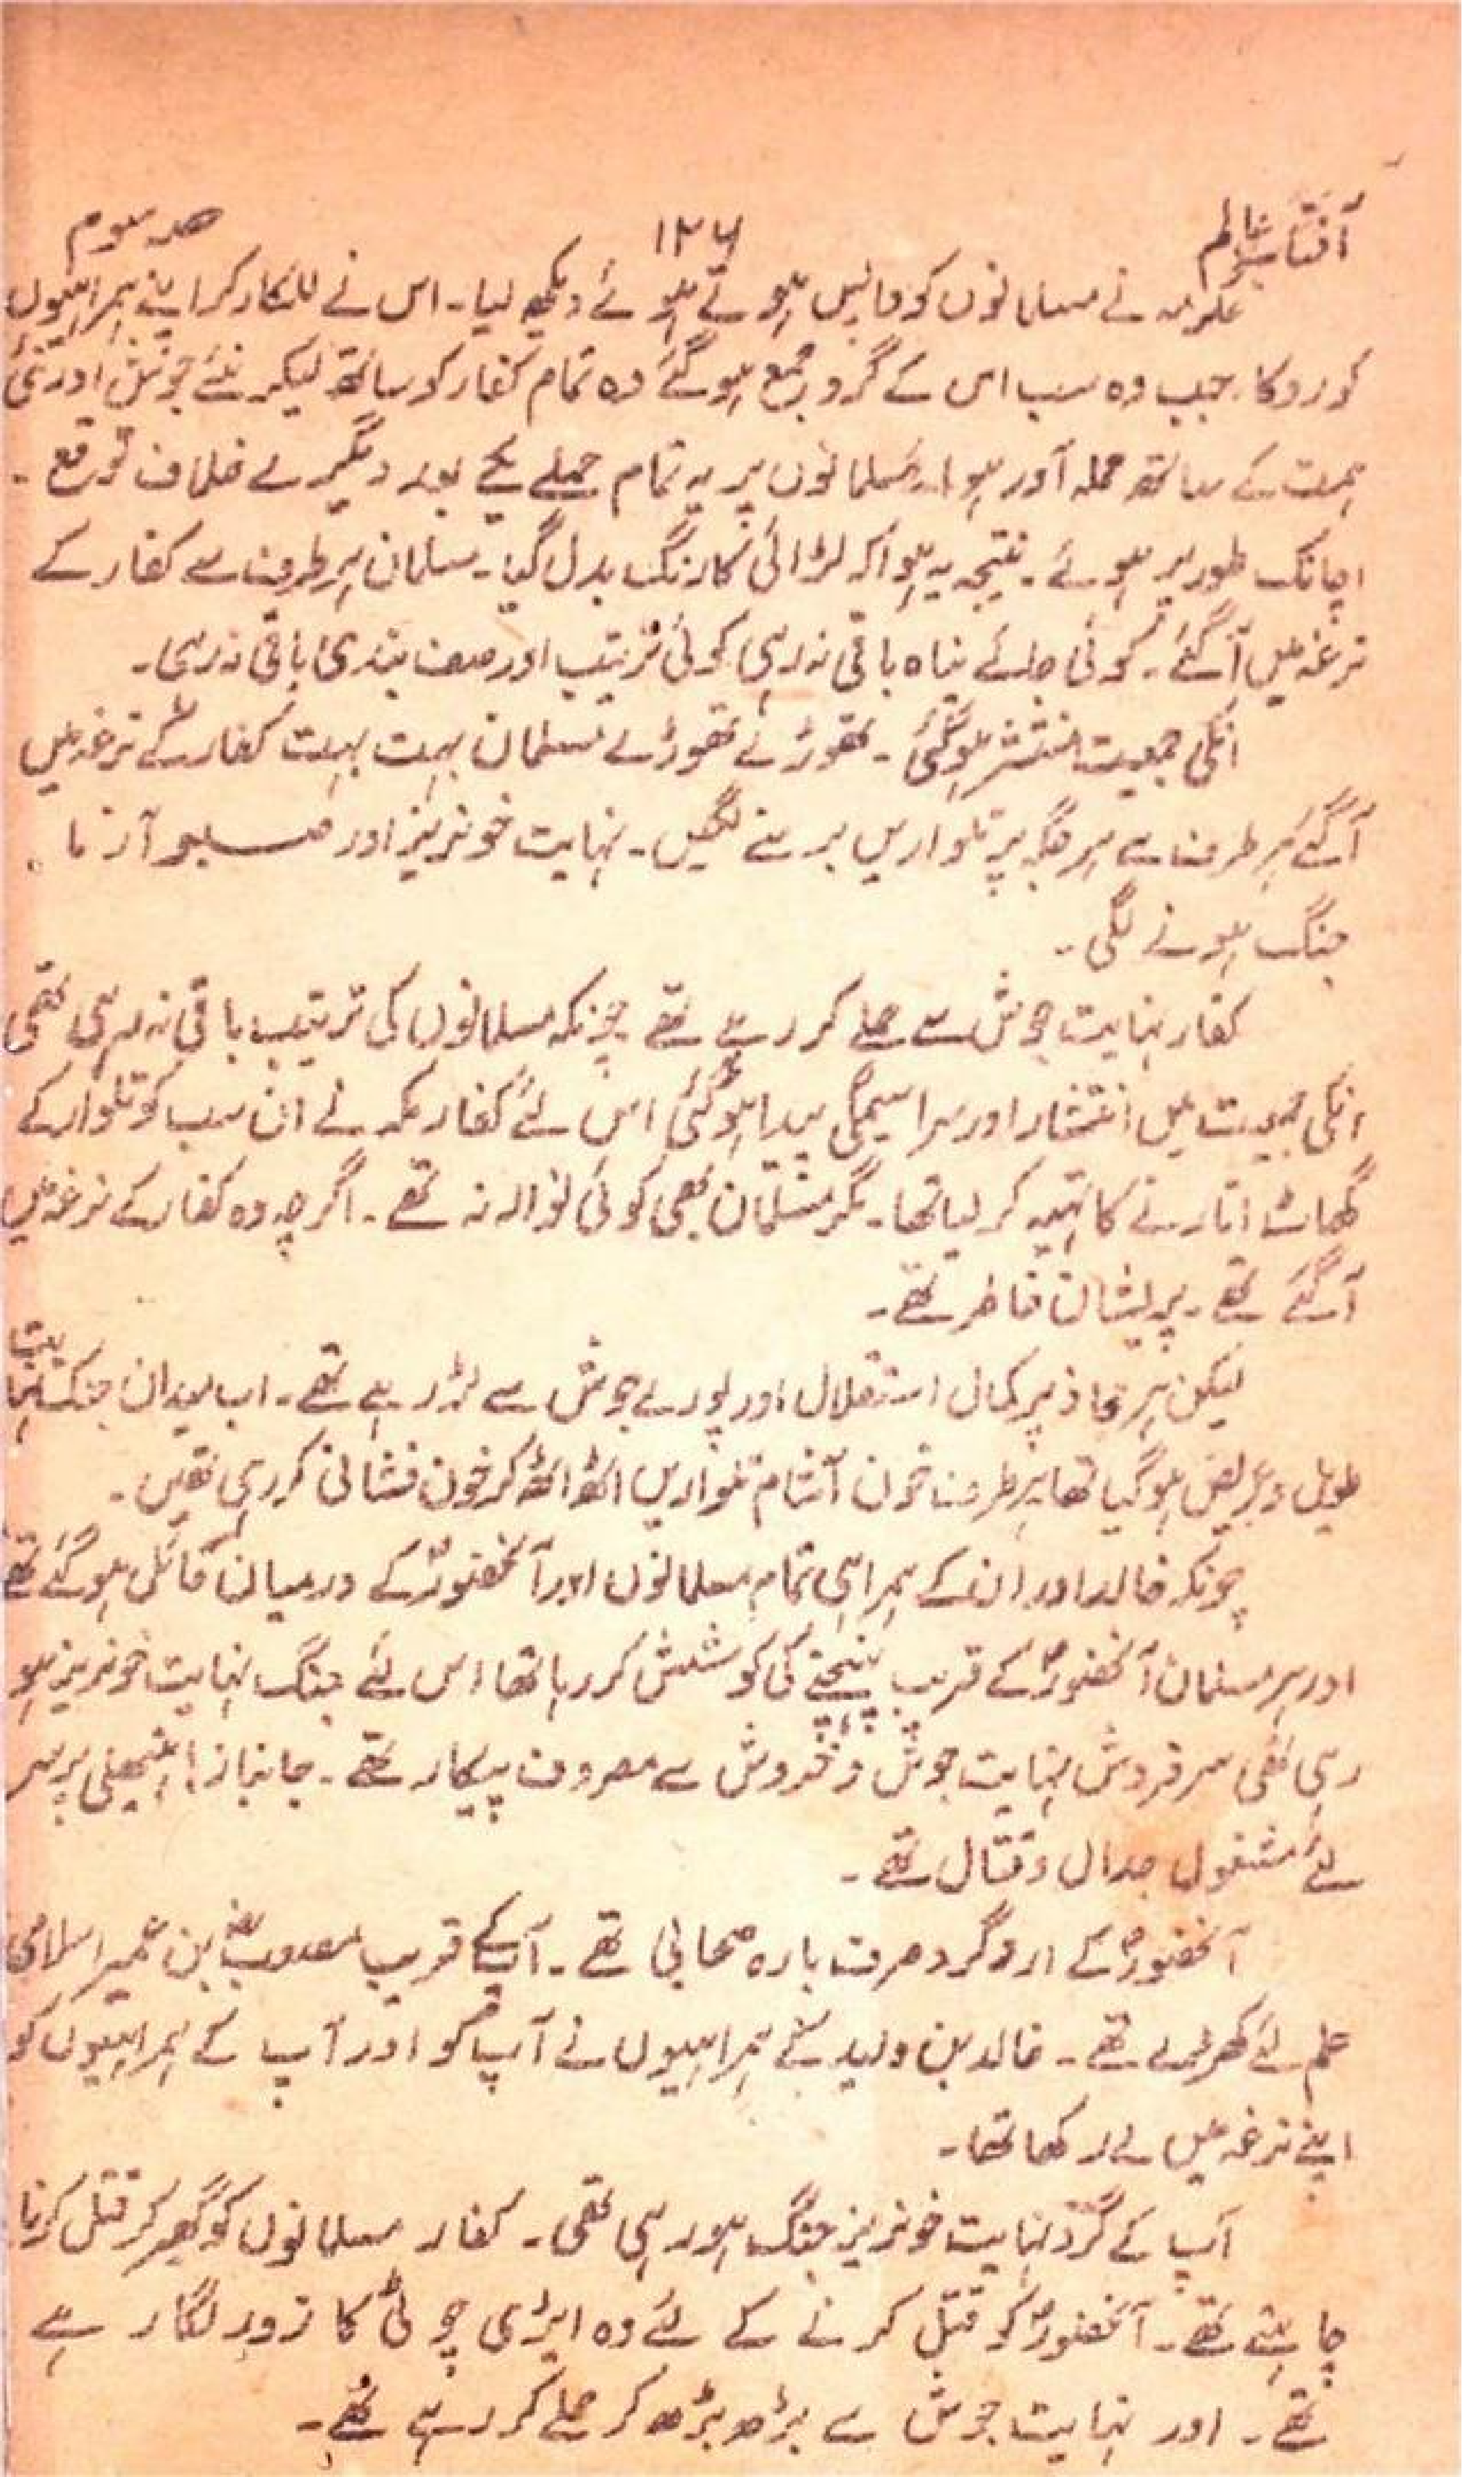 آفتاب عالم ۱۲۶ حصہ سوم
عکرمہ نے مسلمانوں کو واپس ہوتے ہوئے دیکھ لیا۔ اس نے للکار کر اپنے ہمراہیوں
کو روکا۔ جب وہ سب اس کے گرد جمع ہو گئے وہ تمام کفار کو ساتھ لیکر نئے جوش اور نئی
ہمت کے ساتھ حملہ آور ہوا۔ مسلمانوں پر یہ تمام حملے یکے بعد دیگرے خلاف توقع۔
اچانک طور پر ہوئے۔ نتیجہ یہ ہوا کہ لڑائی کا رنگ بدل گیا۔ مسلمان ہر طرف سے کفار کے
نرغہ میں آ گئے۔ کوئی جائے پناہ باقی نہ رہی کوئی ترتیب اور صف بندی باقی نہ رہی۔
انکی جمعیت منتشر ہو گئی۔ تھوڑے تھوڑے مسلمان بہت بہت کفار کے نرغہ میں
آ گئے ہر طرف سے ہر جگہ پر تلواریں برسنے لگیں۔ نہایت خونریز اور صبر آزما
جنگ ہونے لگی۔
کفار نہایت جوش سے حملے کر رہے تھے چونکہ مسلمانوں کی ترتیب باقی نہ رہی تھی
انکی جمعیت میں انتشار اور سراسیمگی پیدا ہو گئی اس لئے کفار مکہ نے ان سب کو تلوار کے
گھاٹ اتارنے کا تہیہ کر لیا تھا۔ مگر مسلمان بھی کوئی نوالہ نہ تھے۔ اگرچہ وہ کفار کے نرغہ میں
آ گئے تھے۔ پریشان خاطر تھے۔
لیکن ہر محاذ پر کمال استقلال اور پورے جوش سے لڑ رہے تھے۔ اب میدان جنگ بہت
طویل و عریض ہو گیا تھا ہر طرف خون آشام تلواریں اٹھ اٹھ کر خون فشانی کر رہی تھیں۔
چونکہ خالد اور ان کے ہمراہی تمام مسلمانوں اور آنحضورؐ کے درمیان حائل ہو گئے تھے
اور ہر مسلمان آنحضورؐ کے قریب پہنچنے کی کوشش کر رہا تھا اس لئے جنگ نہایت خونریز ہو
رہی تھی سرفروش نہایت جوش و خروش سے مصروف پیکار تھے۔ جانباز ہتھیلی پر سر
لئے مشغول جدال و قتال تھے۔
آنحضورؐ کے ارد گرد صرف بارہ صحابی تھے۔ آپ کے قریب مصعبؓ بن عمیر اسلامی
علم لئے کھڑے تھے۔ خالد بن ولید کے ہمراہیوں نے آپؐ کو اور آپ کے ہمراہیوں کو
اپنے نرغہ میں لے رکھا تھا۔
آپ کے گرد نہایت خونریز جنگ ہو رہی تھی۔ کفار مسلمانوں کو گھیر کر قتل کرنا
چاہتے تھے۔ آنحضورؐ کو قتل کرنے کے لئے وہ ایڑی چوٹی کا زور لگا رہے
تھے۔ اور نہایت جوش سے بڑھ بڑھ کر حملے کر رہے تھے۔